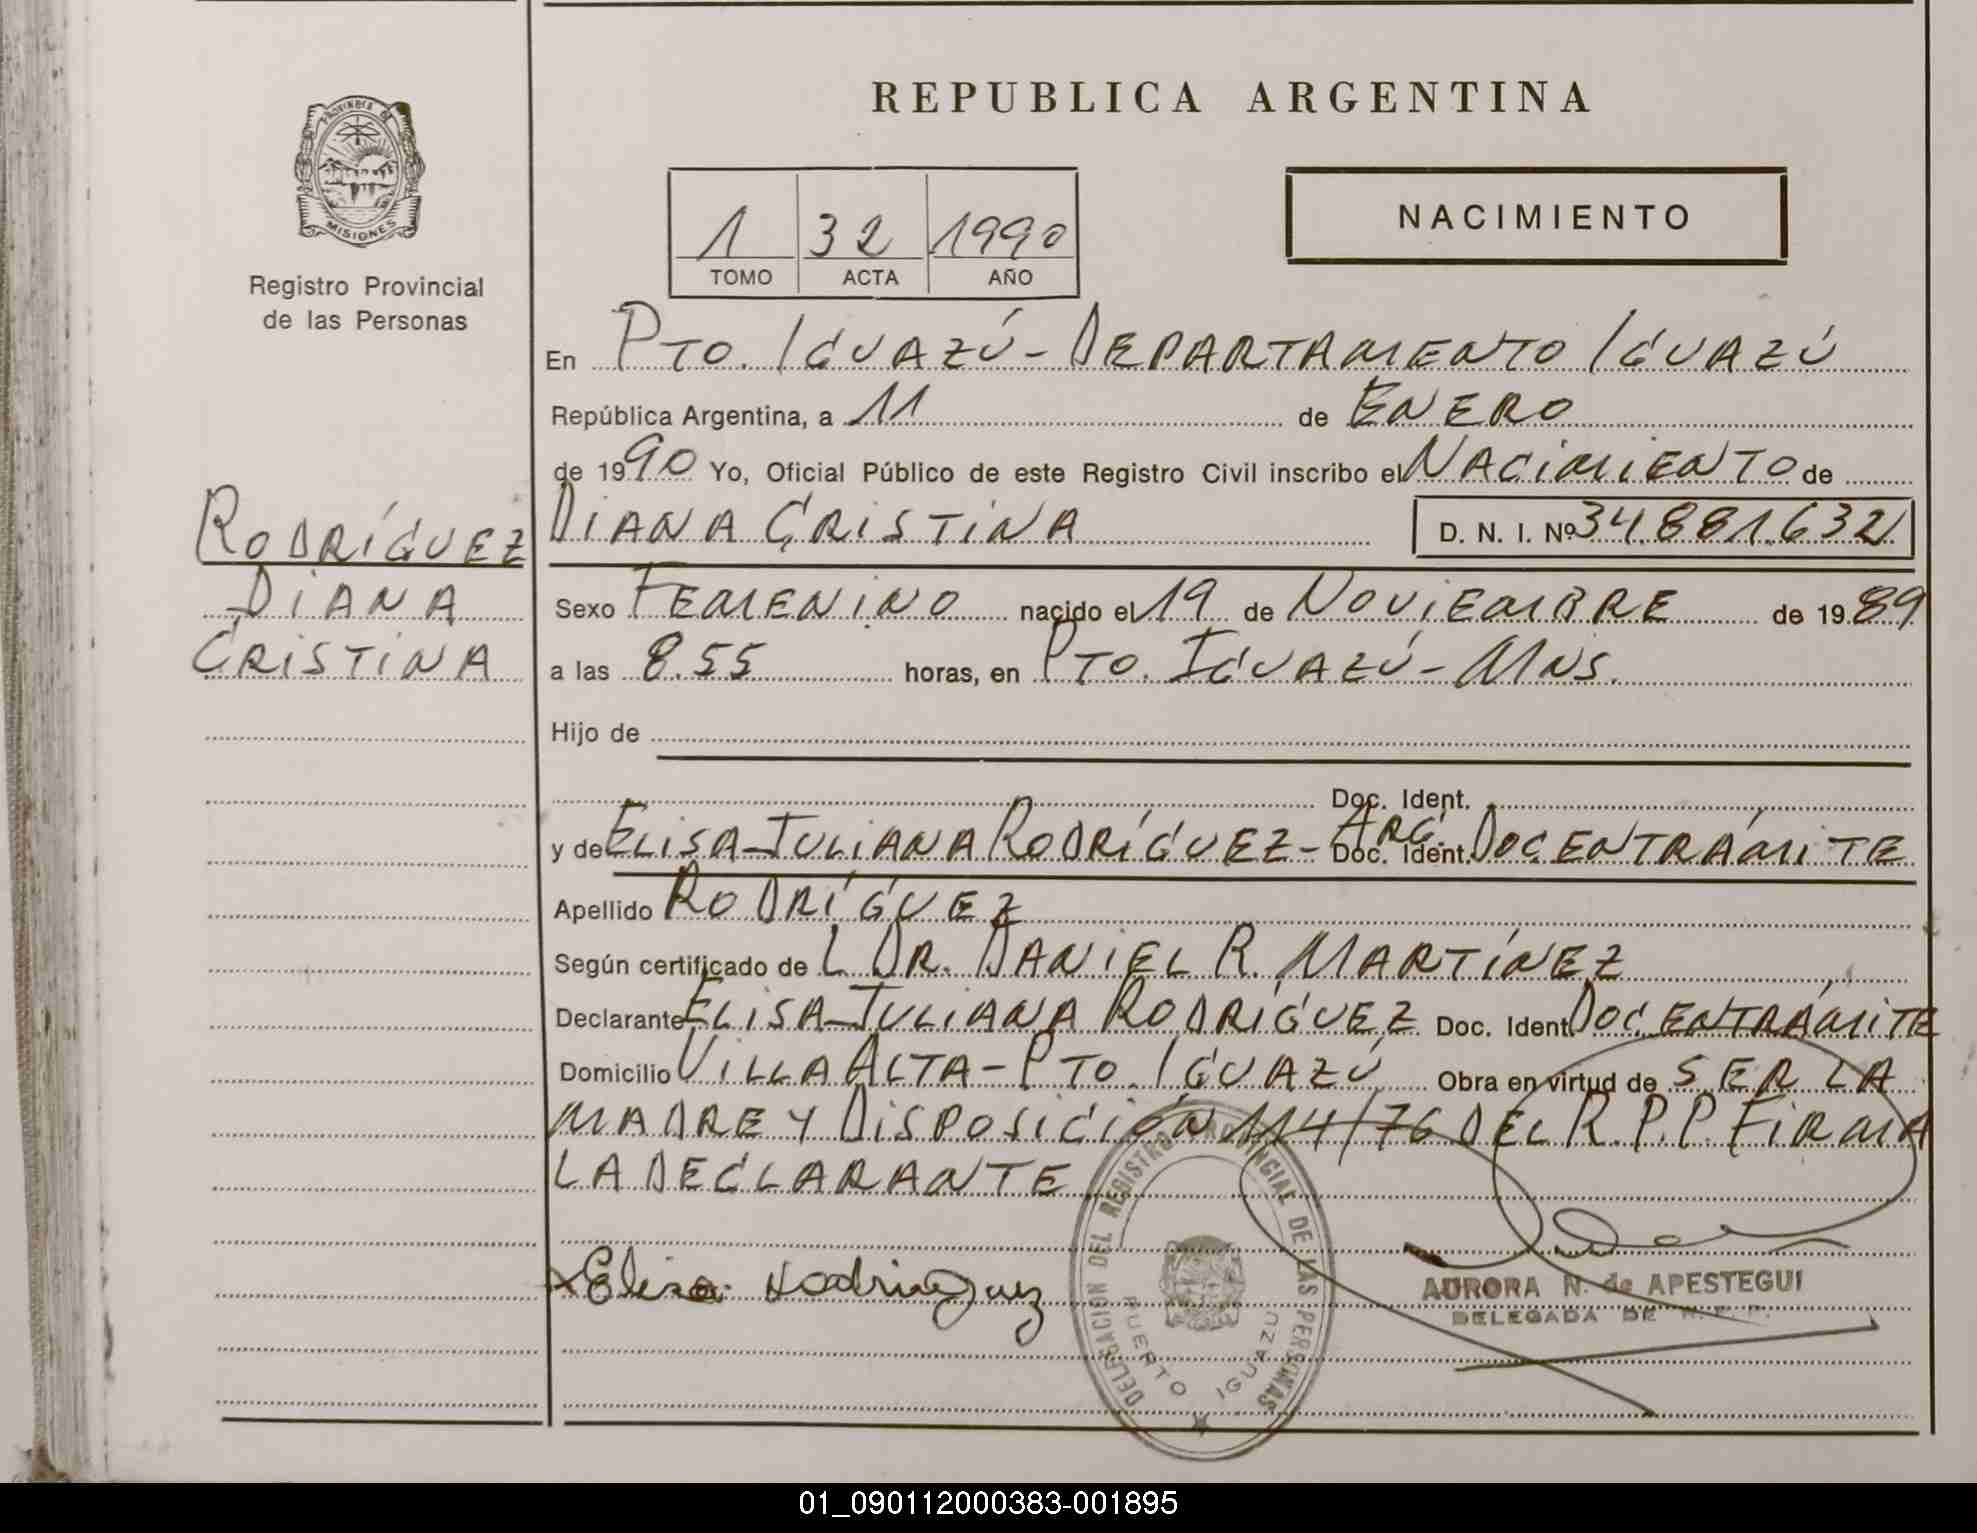 REPUBLICA ARGENTINA
PROVINCIA DE
MISIONES
Registro Provincial
de las Personas
1 32 1990
TOMO ACTA AÑO
NACIMIENTO
En PTO. IGUAZÚ - DEPARTAMENTO IGUAZÚ
República Argentina, a 11 de ENERO
de 1990 Yo, Oficial Público de este Registro Civil inscribo el NACIMIENTO de
DIANA CRISTINA D. N. I. Nº 34.881.632
RODRÍGUEZ
DIANA
CRISTINA
Sexo FEMENINO nacido el 19 de NOVIEMBRE de 1989
a las 8.55 horas, en PTO. IGUAZÚ - MNS.
Hijo de
Doc. Ident.
y de ELISA JULIANA RODRÍGUEZ - ARG. Doc. Ident. DOC EN TRÁMITE
Apellido RODRÍGUEZ
Según certificado de L DR. DANIEL R. MARTÍNEZ
Declarante ELISA JULIANA RODRÍGUEZ Doc. Ident. DOC EN TRÁMITE
Domicilio VILLA ALTA - PTO. IGUAZÚ Obra en virtud de SER LA
MADRE Y DISPOSICIÓN 114/76 DEL R.P.P. FIRMA
LA DECLARANTE
x Elisa Rodriguez
DELEGACION DEL REGISTRO PROVINCIAL DE LAS PERSONAS
PUERTO IGUAZU
AURORA N. de APESTEGUI
DELEGADA DE
01_090112000383-001895